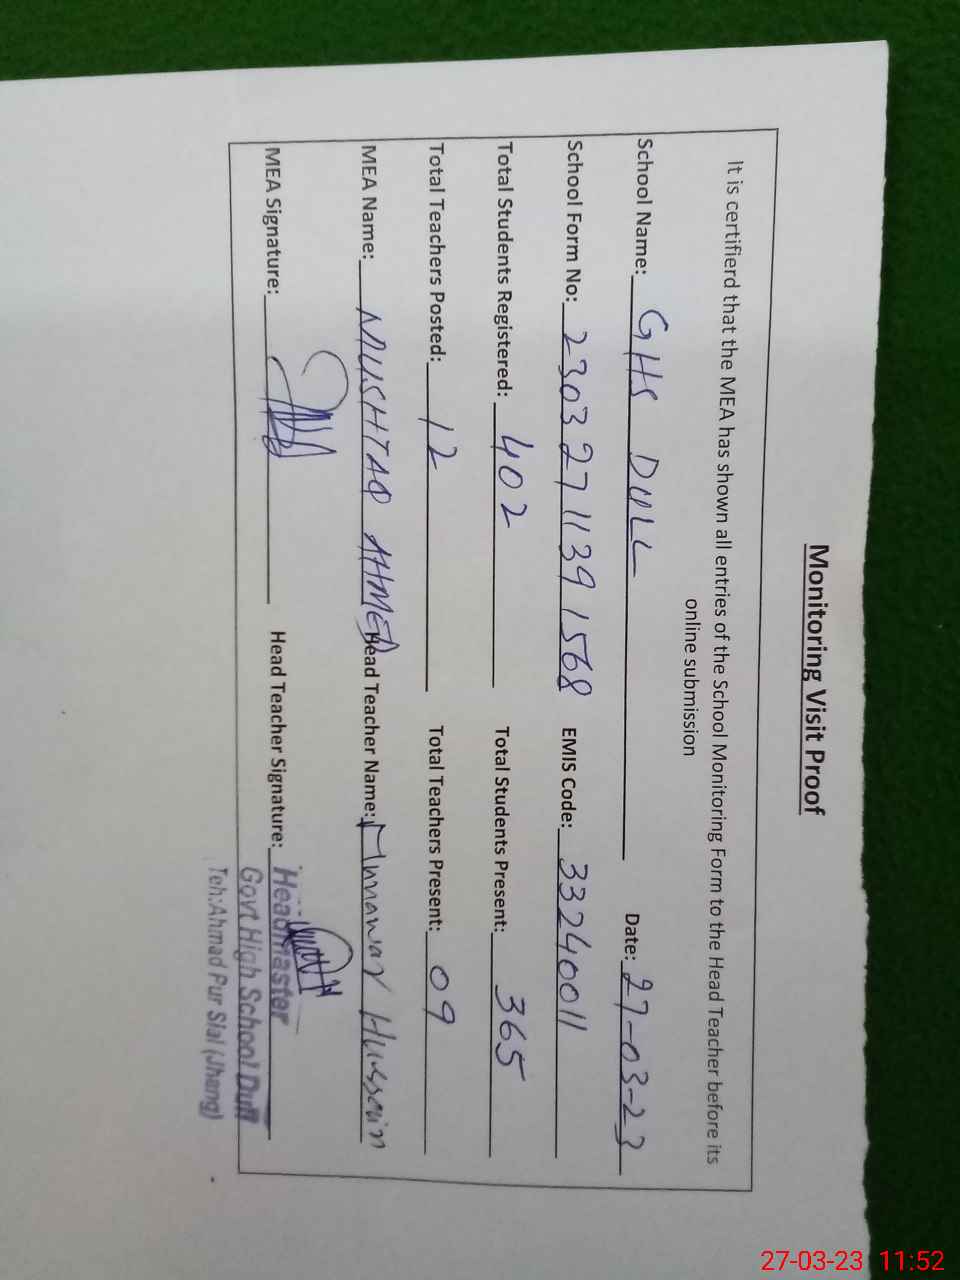 Monitoring Visit Proof
It is certifierd that the MEA has shown all entries of the School Monitoring Form to the Head Teacher before its
online submission
School Name: GHS DULL Date: 27-03-23
School Form No: 2303271139 1568 EMIS Code: 33240011
Total Students Registered: 402 Total Students Present: 365
Total Teachers Posted: 12 Total Teachers Present: 09
MEA Name: MUSHTAQ AHMED Head Teacher Name: Munawar Hussain
MEA Signature: Head Teacher Signature:
HeadMaster
Govt High School Dull
Teh:Ahmad Pur Sial (Jhang)
27-03-23 11:52